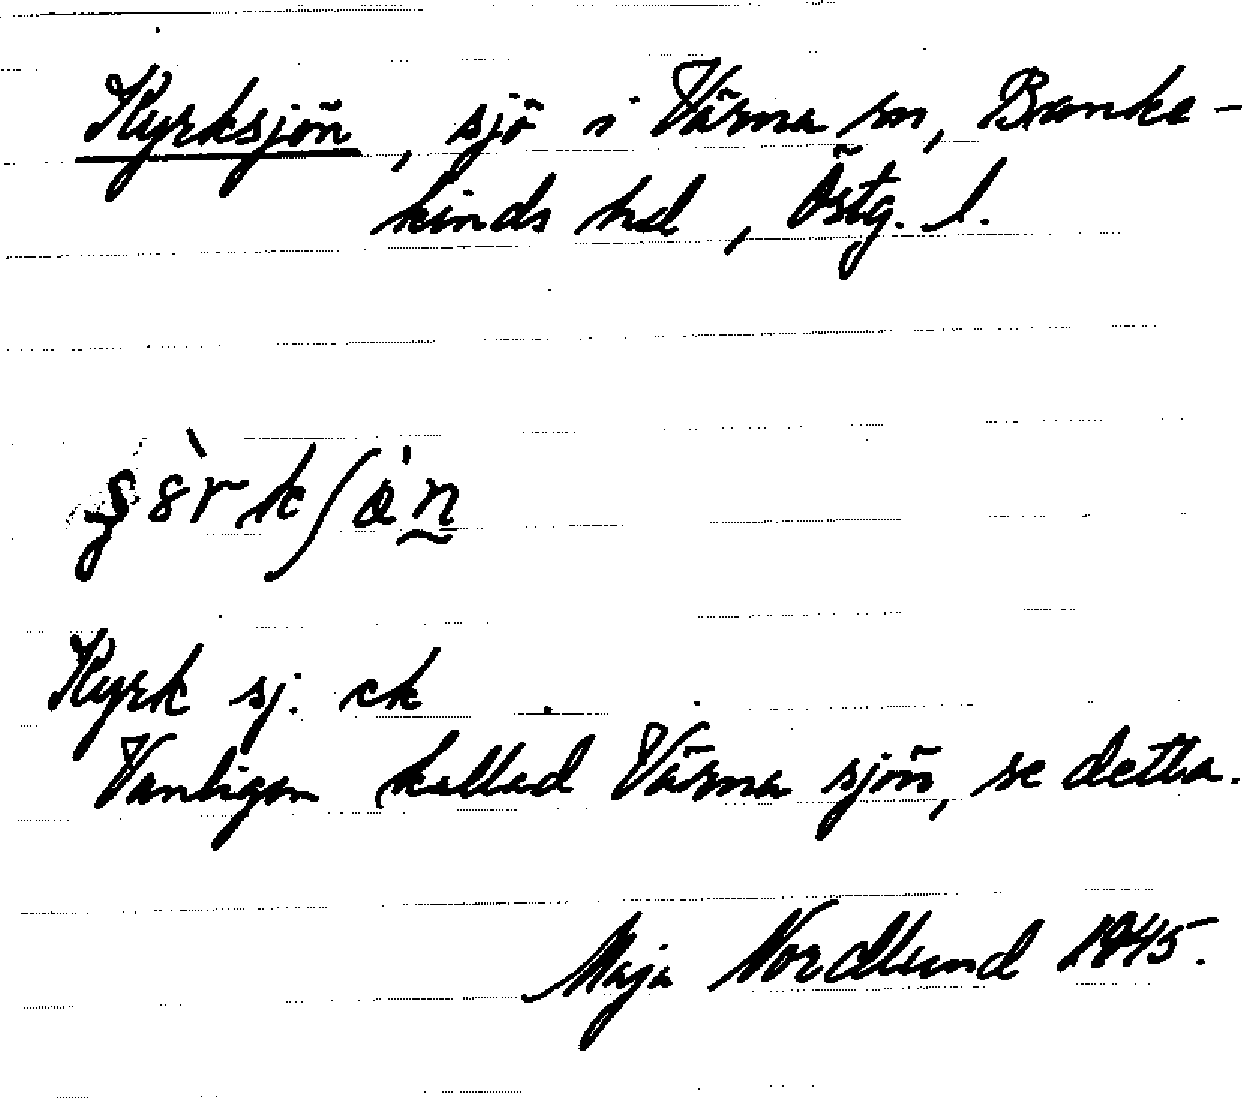 Kyrksjön, sjö i Värna sn, Banke-
kinds hd, Östg. l.
Kyrk sj. ek
Vanligen kallad Värna sjön, se detta.
Maja Nordlund 1945.